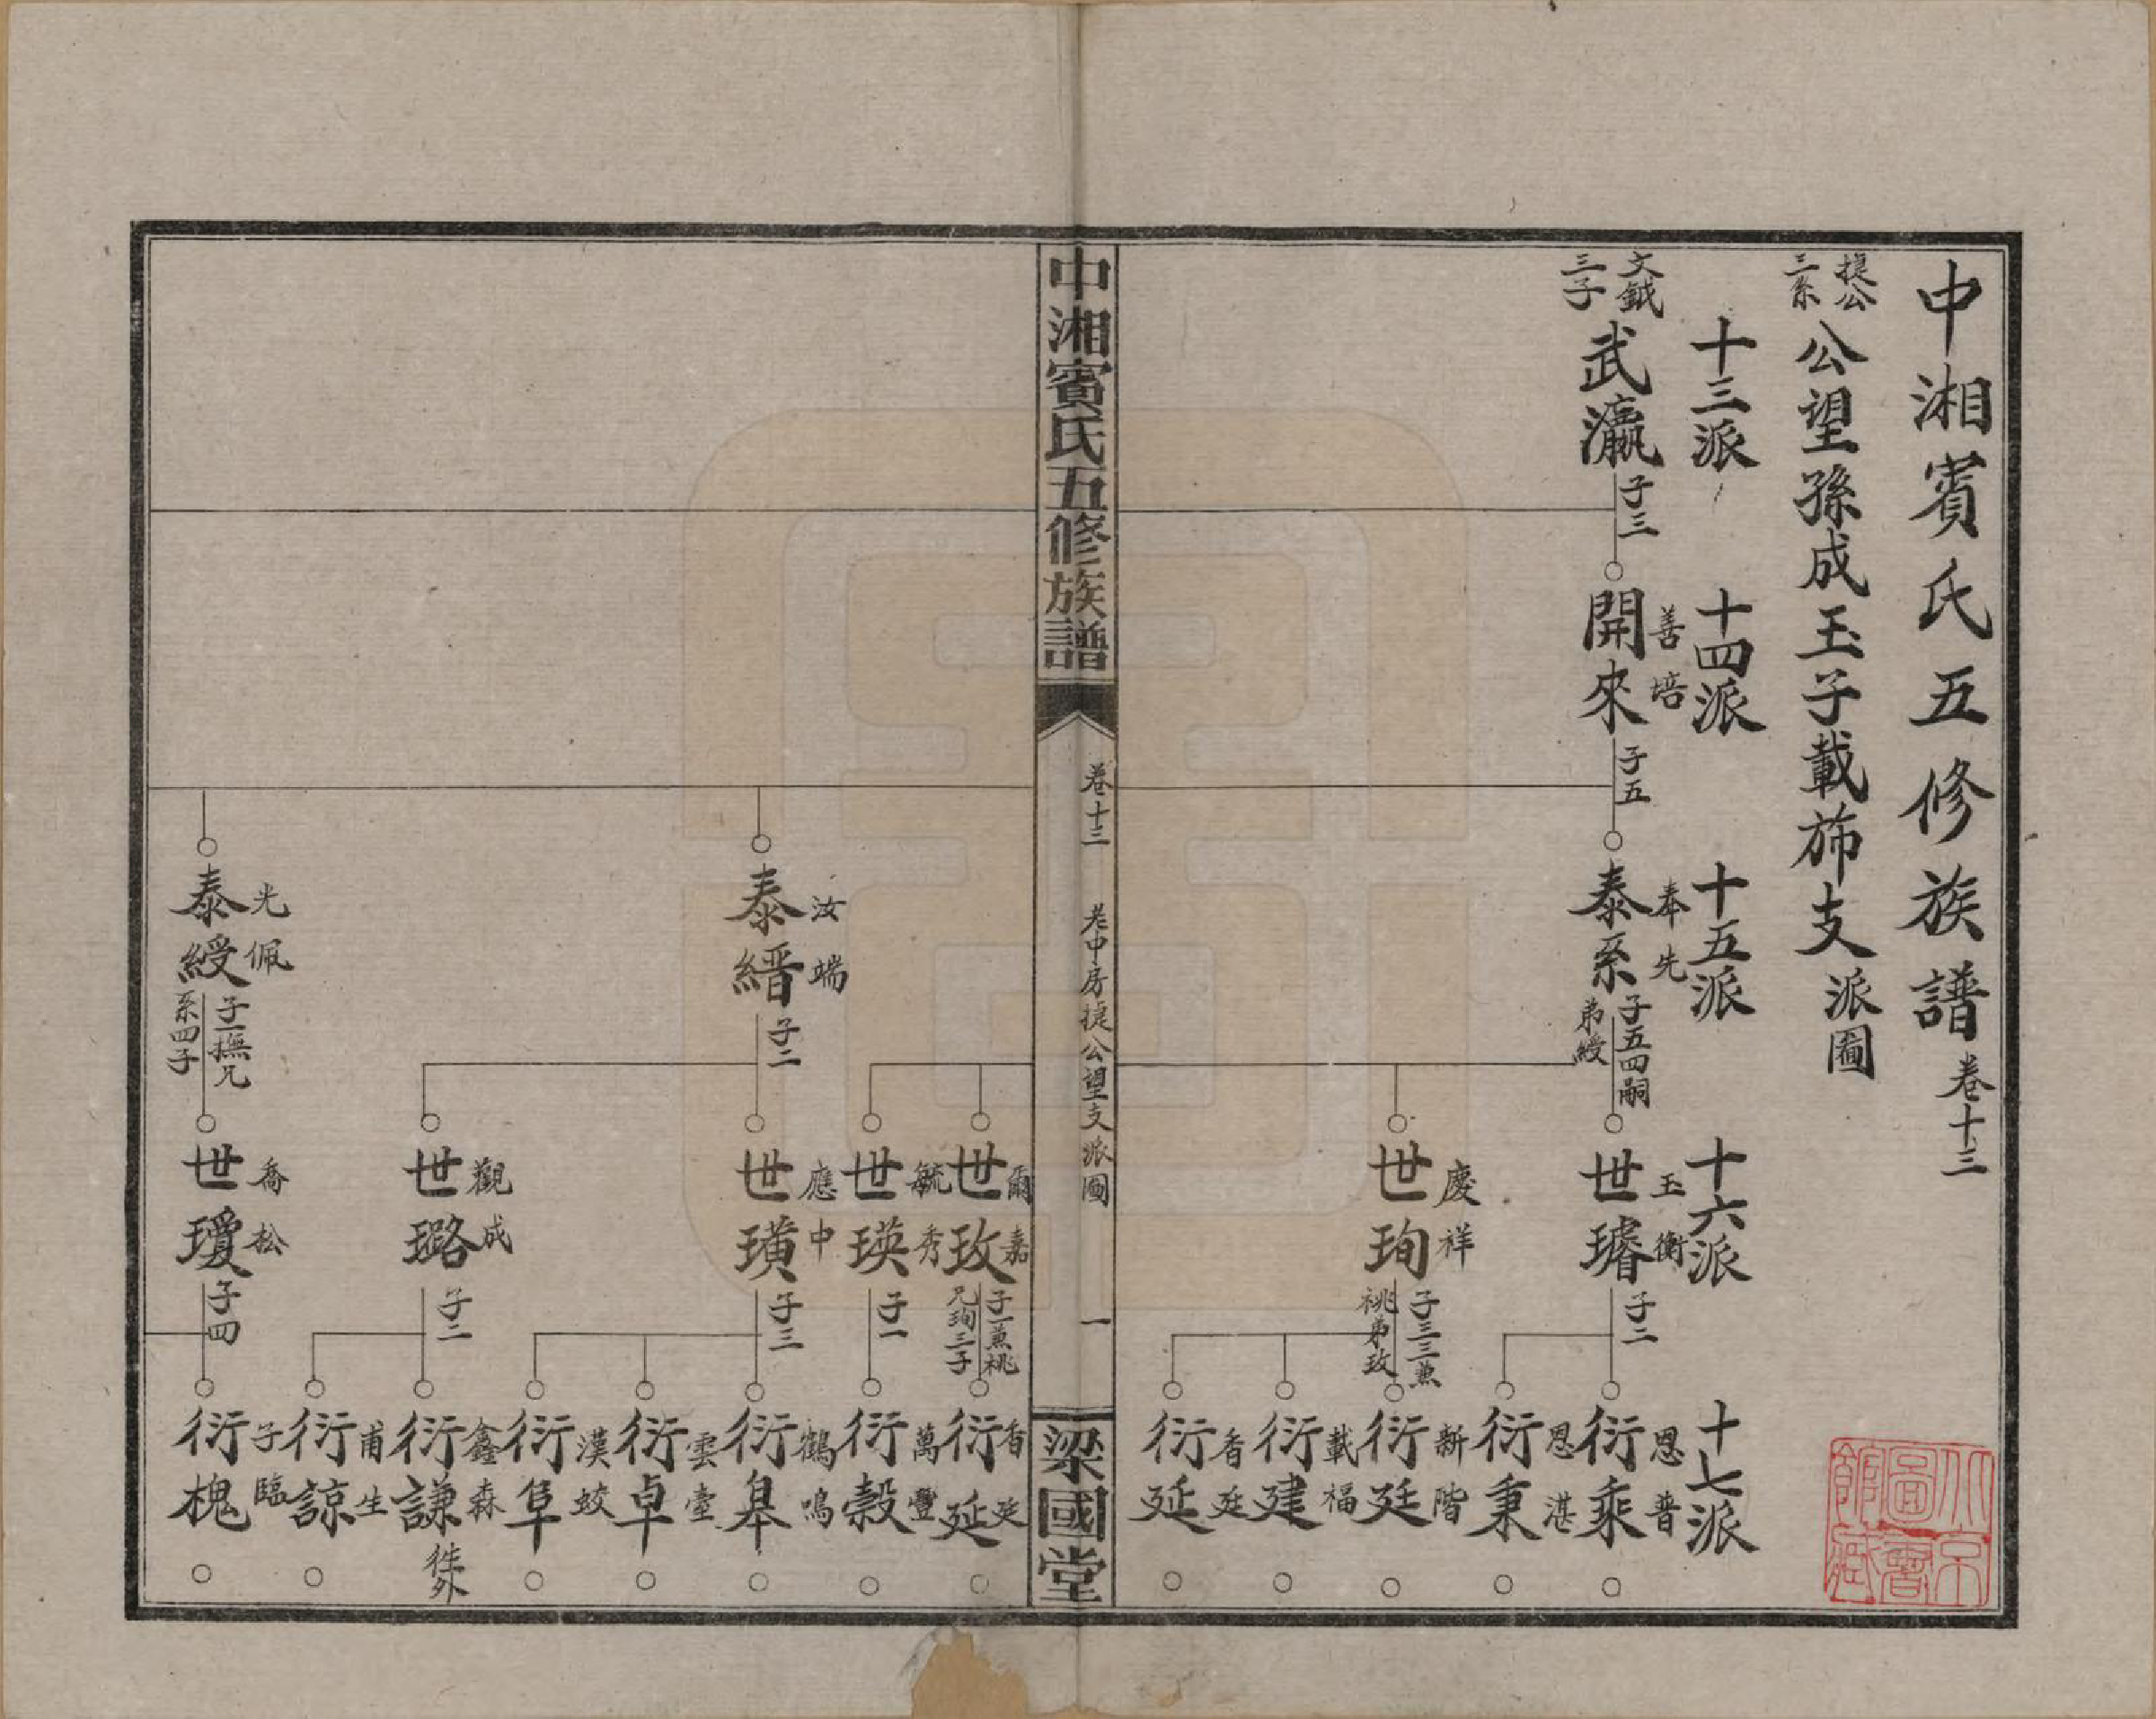 中湘賓氏五修族譜卷十三
捷公三系公望孫成玉子載斾支派圖
十三派
十四派
十五派
十六派
十七派
文鉞三子武瀛子三
開來善培子五
泰系奉先子五四嗣弟綬
世璿玉衡子二
衍乘恩普
衍秉恩湛
世珣慶祥子三三兼祧弟玫
衍廷新階
衍建載福
衍延香廷
中湘賓氏五修族譜
卷十三
老中房捷公望支派圖
一
梁國堂
世玫爾嘉子一兼祧兄珣三子
衍延香廷
世瑛毓秀子一
衍穀萬豐
泰縉汝端子二
世璜應中子三
衍皋鶴鳴
衍卓雲臺
衍阜漢蛟
世璐觀成子二
衍謙鑫森徙外
衍諒甫生
泰綬光佩子一撫兄系四子
世瓊喬松子四
衍槐子臨
北京圖書館藏